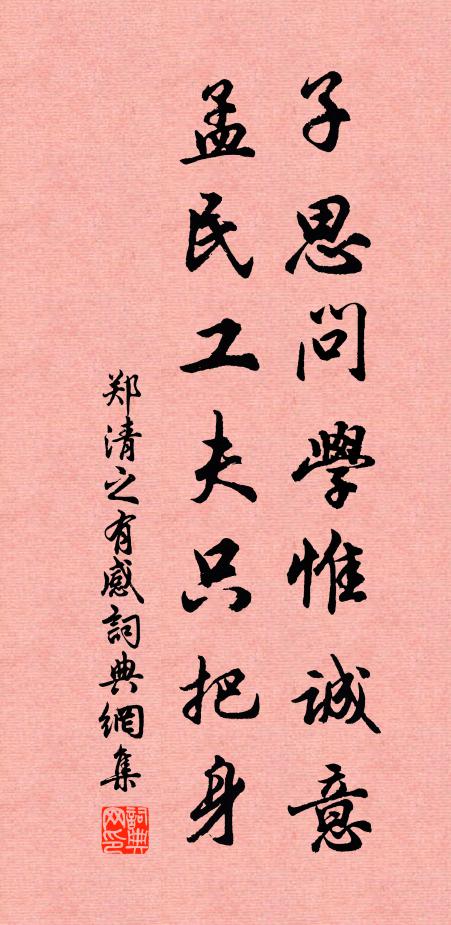 子思問學惟誠意
孟民工夫只把身
郑清之有感詞典網集
詞典网印